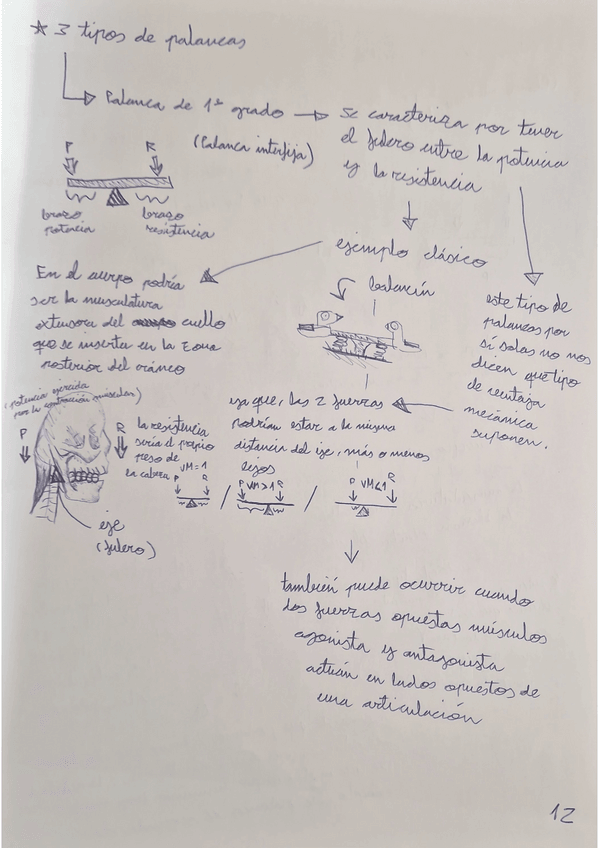 * 3 tipos de palancas
Palanca de 1º grado
(Palanca interfija)
se caracteriza por tener
el fulcro entre la potencia
y la resistencia
P R
brazo
potencia
brazo
resistencia
ejemplo clásico
balancín
En el cuerpo podría
ser la musculatura
extensora del cuello
que se inserta en la zona
posterior del cráneo
este tipo de
palancas por
sí solas no nos
dicen que tipo
de ventaja
mecánica
suponen.
ya que, las 2 fuerzas
podrían estar a la misma
distancia del eje, más o menos
lejos
(potencia ejercida
por la contracción muscular)
P R
la resistencia
sería el propio
peso de
la cabeza
eje
(fulcro)
VM=1
P R
/
P VM>1 R
/
P VM<1 R
también puede ocurrir cuando
dos fuerzas opuestas músculos
agonista y antagonista
actúan en lados opuestos de
una articulación
12